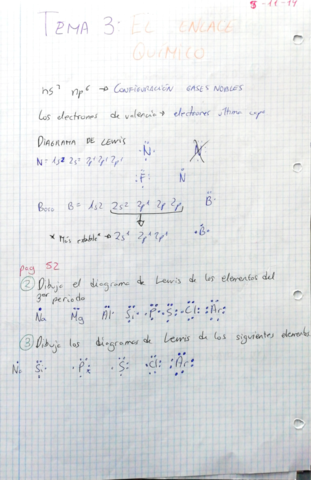 5-11-19
TEMA 3. EL ENLACE
QUÍMICO
ns² np⁶ → CONFIGURACIÓN GASES NOBLES
Los electrones de valencia → electrones última capa
DIAGRAMA DE LEWIS
N = 1s² 2s² 2p¹ 2p¹ 2p¹
N
P N
Boro B = 1s2 2s² 2p¹ 2p 2p
B
* Más estable * → 2s¹ 2p¹ 2p¹
B
pag 52
② Dibuja el diagrama de Lewis de los elementos del
3er periodo
Na Mg Al Si P S Cl Ar
③ Dibuja los diagramas de Lewis de los siguientes elementos
N Si P S Cl Ar